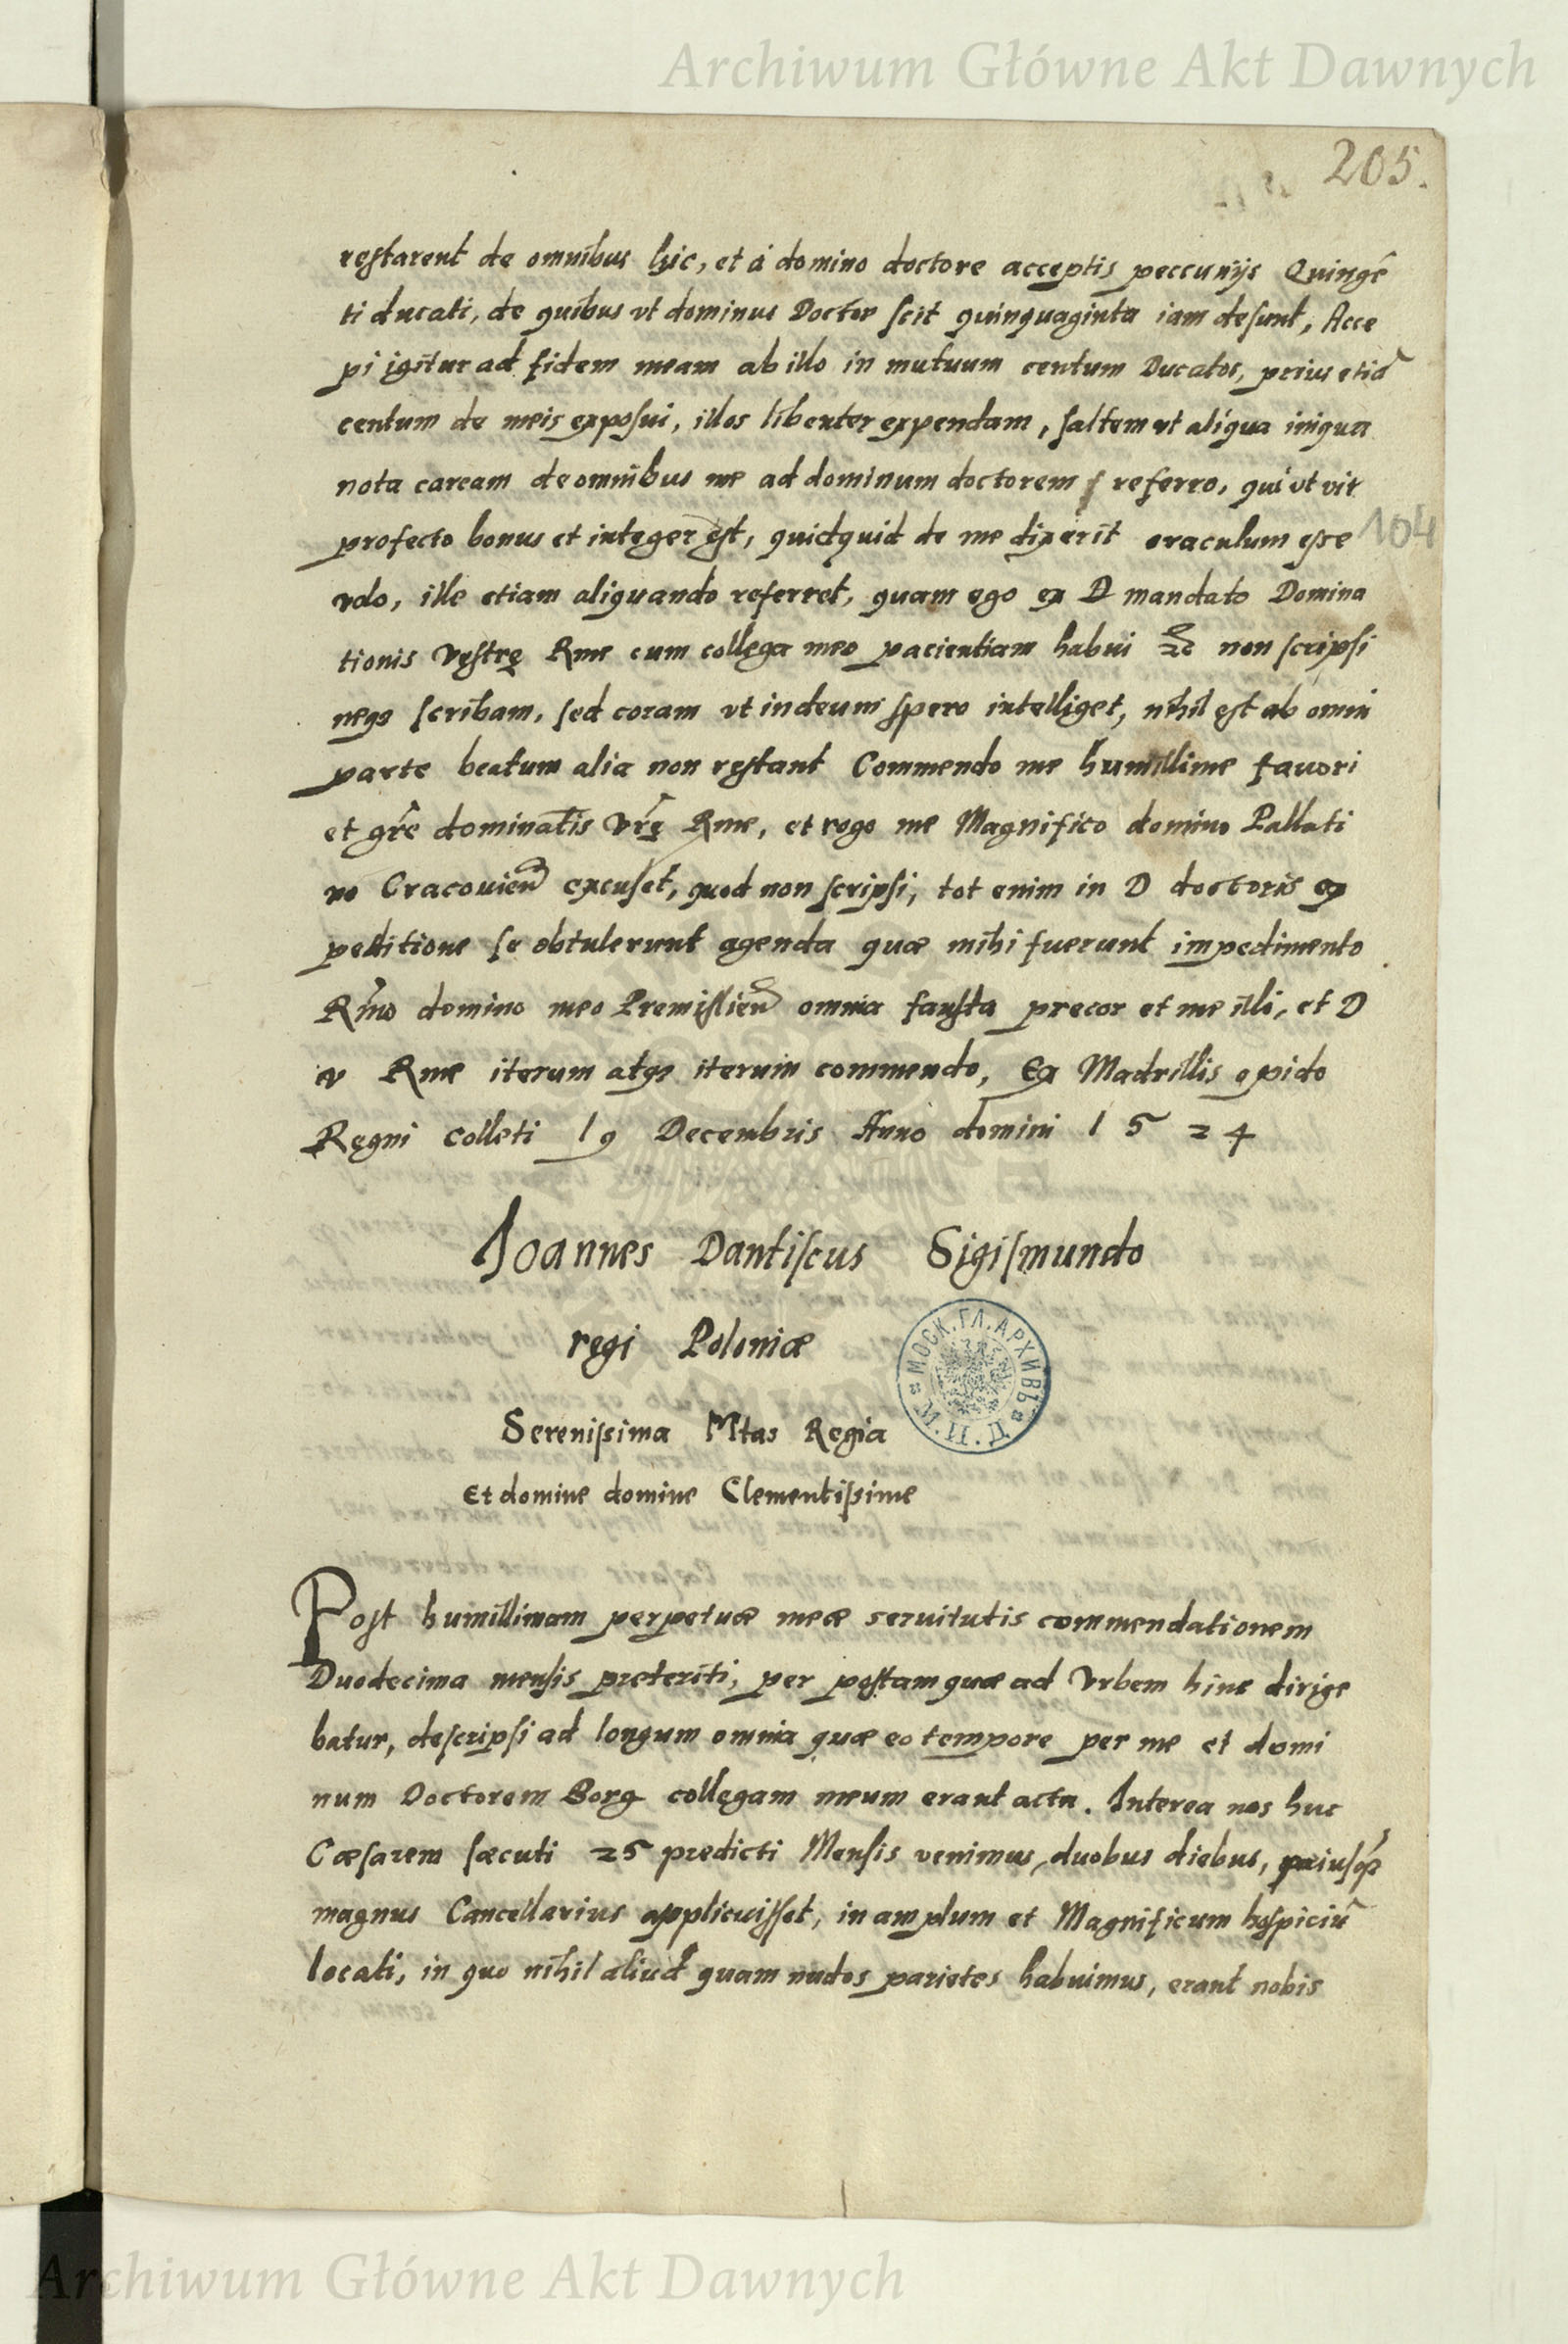 Archiwum Główne Akt Dawnych
205.
restarent de omnibus hic, et á domino doctore acceptis peccunijs Quingẽ
ti ducati, de quibus vt dominus Doctor scit quinquaginta iam desunt, Acce
pi igitur ad fidem meam ab illo in mutuum centum Ducatos, prius etiã
centum de meis exposui, illos libenter expendam, saltem vt aliqua iniqua
nota caream de omnibus me ad dominum doctorem referro, qui vt vir
profecto bonus et integer est, quidquid de me dixerit oraculum esse
104
volo, ille etiam aliquando referret, quam ego ex D mandato Domina
tionis Vestrę Rme cum collega meo pacientiam habui non scripsi
neqe scribam, sed coram vt in deum spero intelliget, nihil est ab omni
parte beatum alia non restant Commendo me humillime fauori
et gr̃e dominatis Vr̃ę Rme, et rogo me Magnifico domino Pallati
no Cracouieñ excuset, quod non scripsi, tot enim in D doctoris ex
peditione se obtulerunt agenda quæ mihi fuerunt impedimento
Rm̃o domino meo Premislieñ omnia fausta precor et me illi, et D
v Rme iterum atqe iterum commendo, Ex Madrillis opido
Regni Colleti 19 Decembris Anno domini 1524
Ioannes Dantiscus Sigismundo
regi Poloniæ
МОСК. ГЛ. АРХИВЪ
Serenissima Mtas Regia
Et domine domine Clementissime
Post humillimam perpetuæ meæ seruitutis commendationem
Duodecima mensis preteriti, per postam quæ ad Vrbem hinc dirige
batur, descripsi ad longum omnia quæ eo tempore per me et domi
num Doctorem Borg collegam meum erant acta. Interea nos huc
Cæsarem sæcuti 25 predicti Mensis venimus, duobus diebus, priusq̃
magnus Cancellarius applicuisset, in amplum et Magnificum hospiciũ
locati, in quo nihil aliud quam nudos parietes habuimus, erant nobis
Archiwum Główne Akt Dawnych